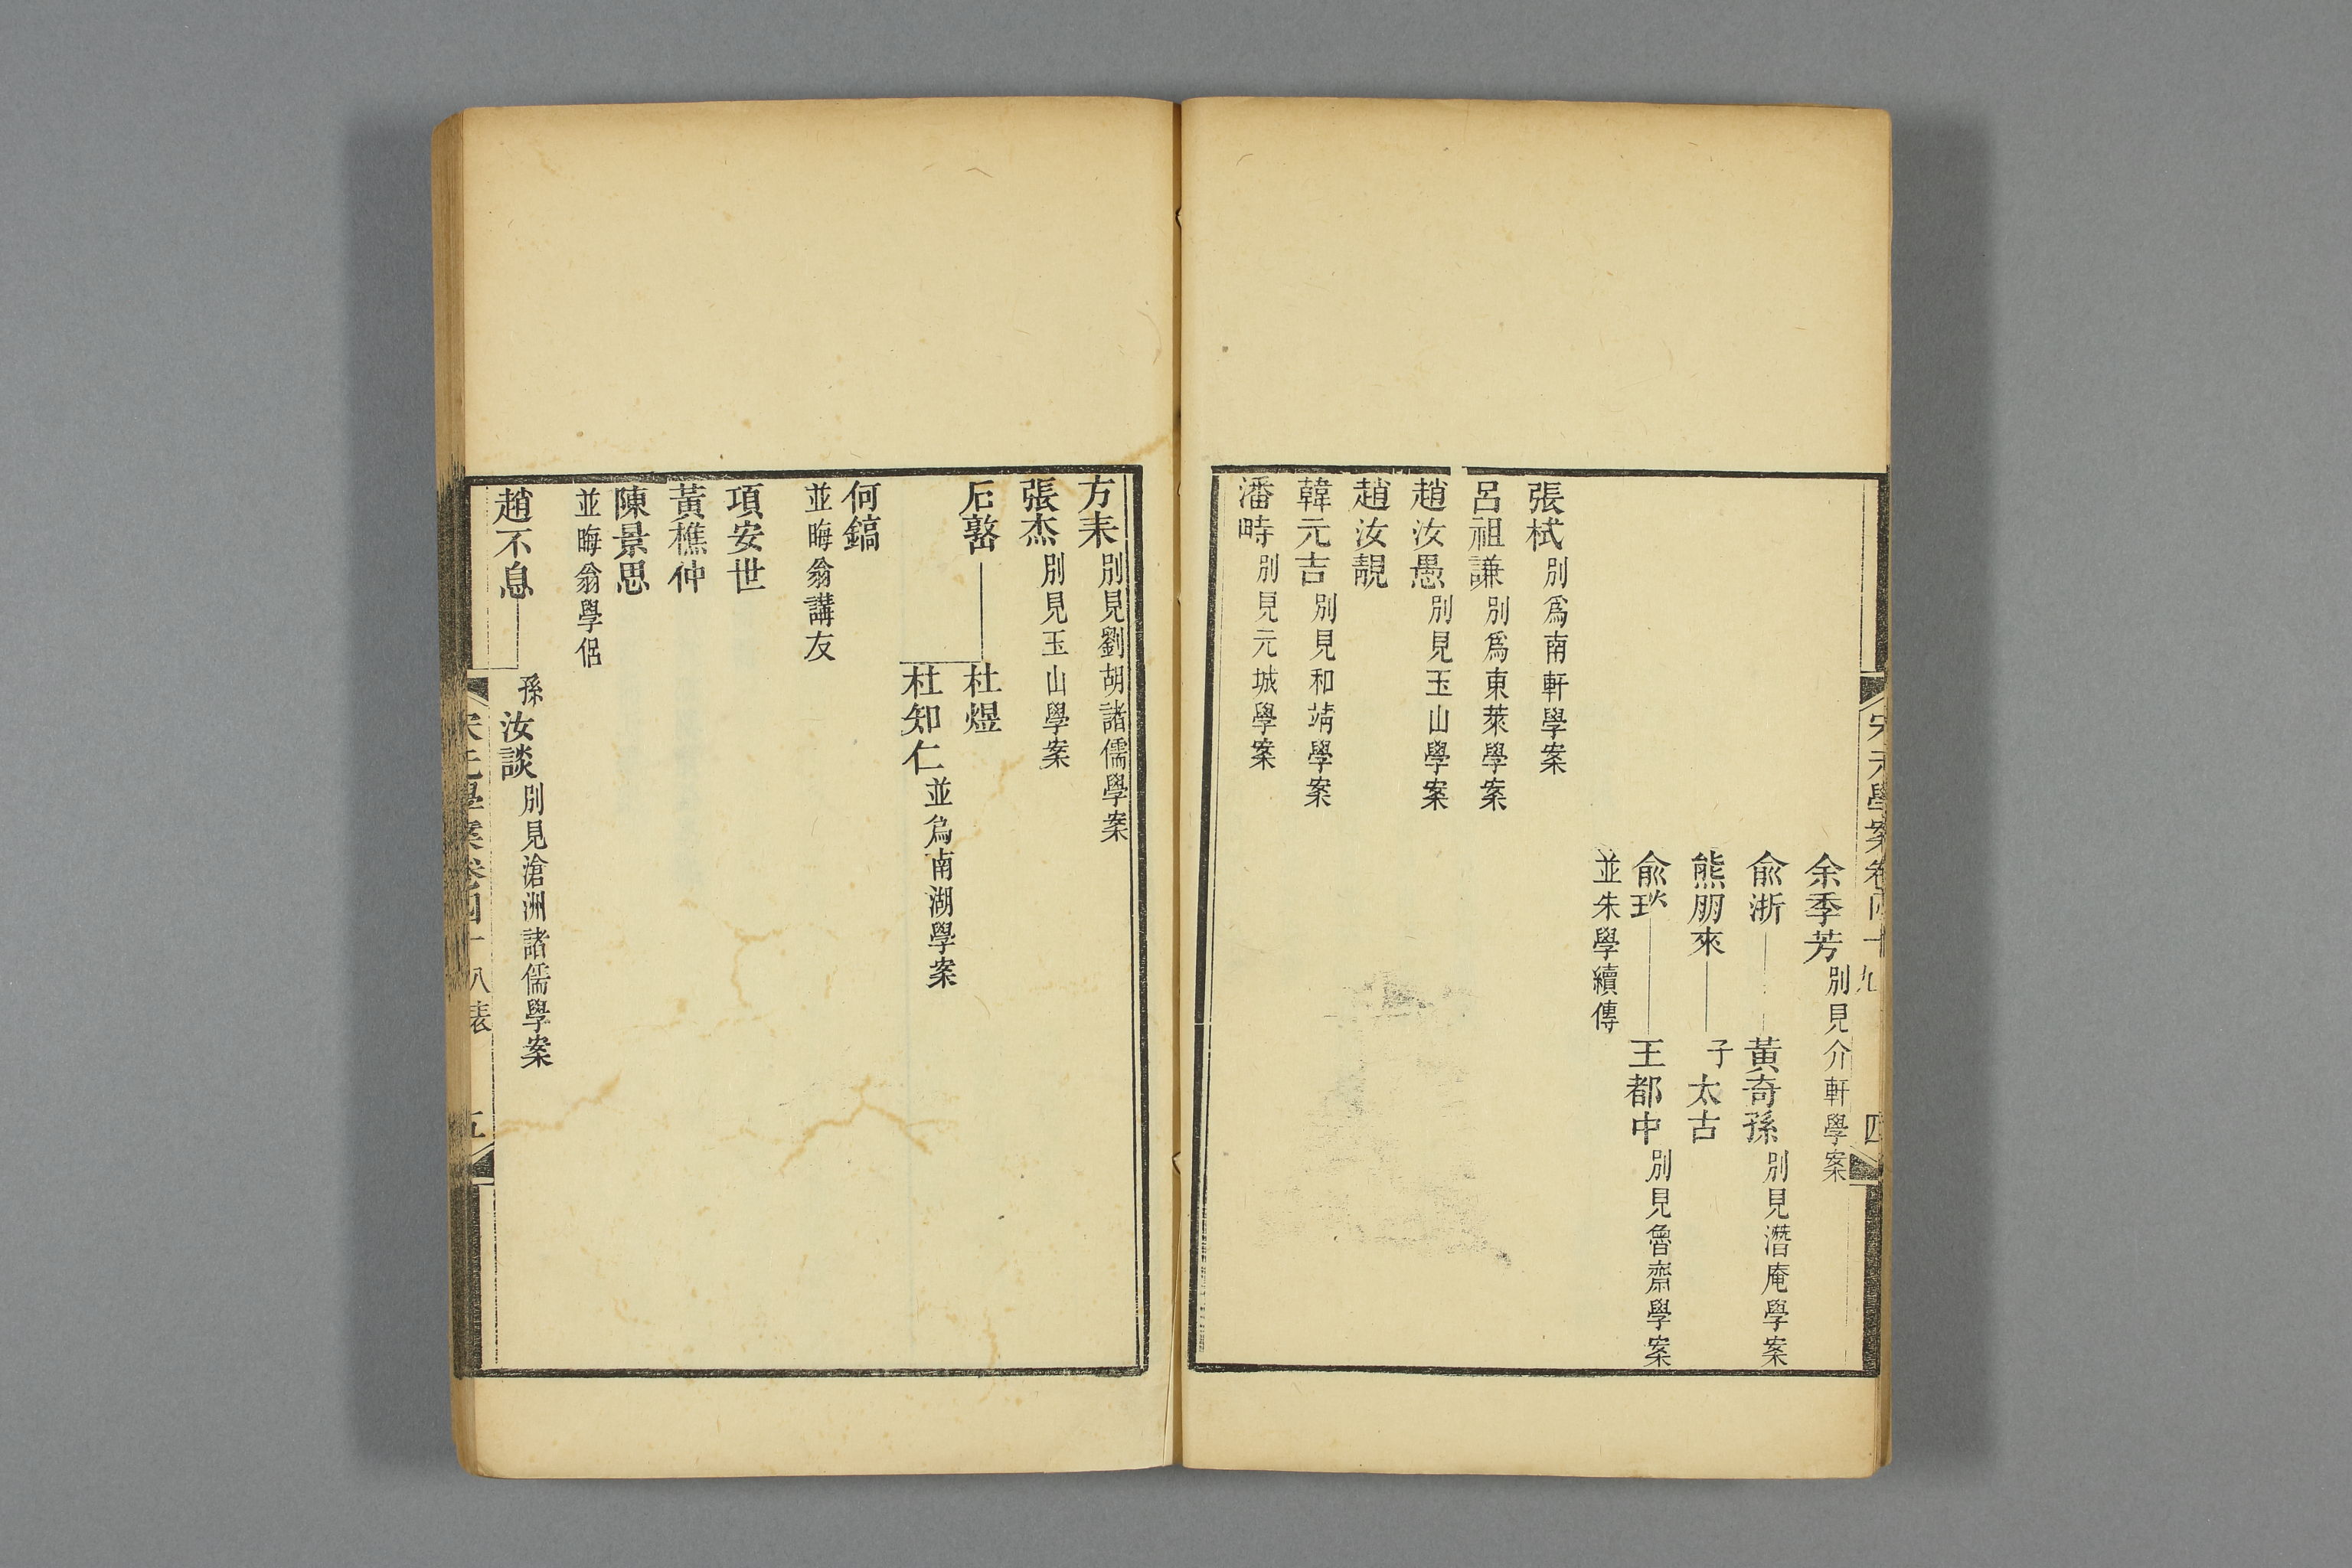 余季芳別見介軒學案
俞浙 黃奇孫別見潛庵學案
熊朋來 子太古
俞琰 王都中別見魯齋學案
並朱學續傳
張栻別爲南軒學案
呂祖謙別爲東萊學案
趙汝愚別見玉山學案
趙汝靚
韓元吉別見和靖學案
潘畤別見元城學案
方耒別見劉胡諸儒學案
張杰別見玉山學案
石𡼖 杜煜
杜知仁並爲南湖學案
何鎬
並晦翁講友
項安世
黃樵仲
陳景思
並晦翁學侶
趙不息 孫汝談別見滄洲諸儒學案
宋元學案卷四十八表 五